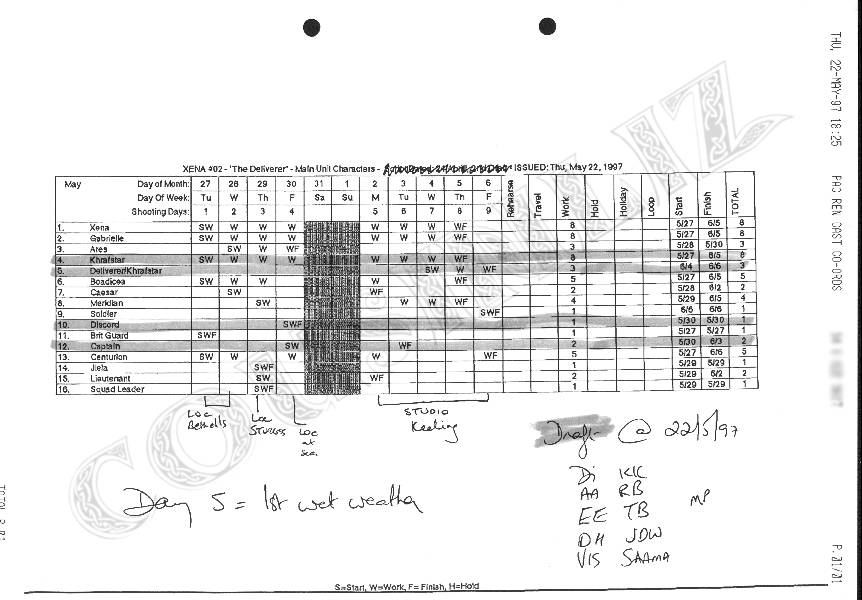 XENA #02 - "The Deliverer" - Main Unit Characters - ISSUED: Thu, May 22, 1997
May Day of Month: 27 28 29 30 31 1 2 3 4 5 6 Rehearse Travel Work Hold Holiday Loop Start Finish TOTAL
Day Of Week: Tu W Th F Sa Su M Tu W Th F
Shooting Days: 1 2 3 4 5 6 7 8 9
1. Xena SW W W W W W W WF 8 5/27 6/5 8
2. Gabrielle SW W W W W W W WF 8 5/27 6/5 8
3. Ares SW W WF 3 5/28 5/30 3
4. Khrafstar SW W W W W W W WF 8 5/27 6/5 8
5. Deliverer/Khrafstar SW W WF 3 6/4 6/6 3
6. Boadicea SW W W W WF 5 5/27 6/5 5
7. Caesar SW WF 2 5/28 6/2 2
8. Meridian SW W W WF 4 5/29 6/5 4
9. Soldier SWF 1 6/6 6/6 1
10. Discord SWF 1 5/30 5/30 1
11. Brit Guard SWF 1 5/27 5/27 1
12. Captain SW WF 2 5/30 6/3 2
13. Centurion SW W W W WF 5 5/27 6/6 5
14. Jiela SWF 1 5/29 5/29 1
15. Lieutenant SW WF 2 5/29 6/2 2
16. Squad Leader SWF 1 5/29 5/29 1
LOC Bethells
LOC STURGES
LOC at sea.
STUDIO Keeling
Draft @ 22/5/97
Day 5 = 1st wet weather
Di KK
AA RB
EE TB MP
DH JDW
VIS SAAMA
S=Start, W=Work, F= Finish, H=Hold
THU, 22-MAY-97 18:25 PAC REN CAST CO-ORDS P.01/01
TOTAL P.01